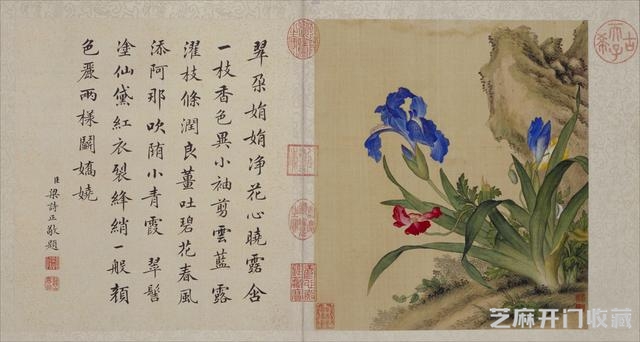 翠朵娟娟净花心曉露含
一枝香色異小袖剪雲藍 露
濯枝條潤良薑吐碧花春風
添阿那吹随小青霞 翠髻
塗仙黛紅衣裂絳綃一般顏
色嚴兩樣鬭嬌嬈
臣梁詩正敬題
古希天子
芝麻开门收藏